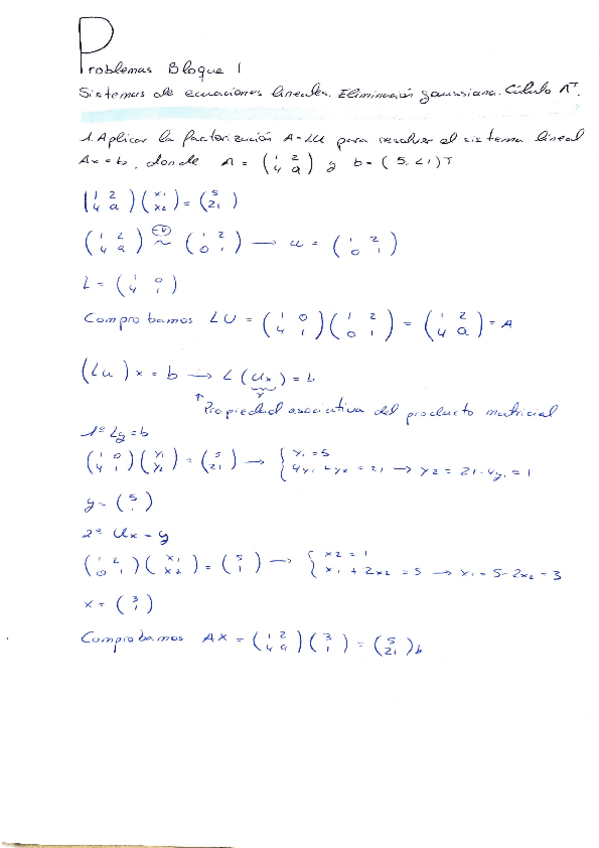 Problemas Bloque 1
Sistemas de ecuaciones lineales. Eliminación gaussiana. Cálculo A⁻¹.
1. Aplicar la factorización A=LU para resolver el sistema lineal
Ax=b, donde A = (1 2; 4 9) y b = (5, 21)T
(1 2; 4 9)(x1; x2) = (5; 21)
(1 2; 4 9) ~ (1 2; 0 1) → U = (1 2; 0 1)
L = (1 0; 4 1)
Comprobamos LU = (1 0; 4 1)(1 2; 0 1) = (1 2; 4 9) = A
(Lu)x = b → L(Ux) = b
y
↑ Propiedad asociativa del producto matricial
1º Ly=b
(1 0; 4 1)(y1; y2) = (5; 21) → { y1 = 5; 4y1 + y2 = 21 → y2 = 21-4y1 = 1
y = (5; 1)
2º Ux = y
(1 2; 0 1)(x1; x2) = (5; 1) → { x2 = 1; x1 + 2x2 = 5 → x1 = 5-2x2 = 3
x = (3; 1)
Comprobamos AX = (1 2; 4 9)(3; 1) = (5; 21) b